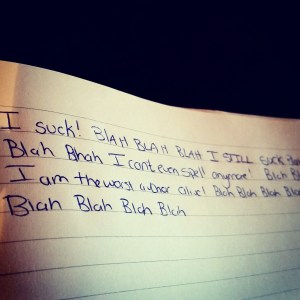 I suck! BLAH BLAH BLAH I STILL SUCK
Blah Bhah I cant even spell anymore! Blah
I am the worst author alive! Blah Blah Blah
Blah Blah Blah Blah